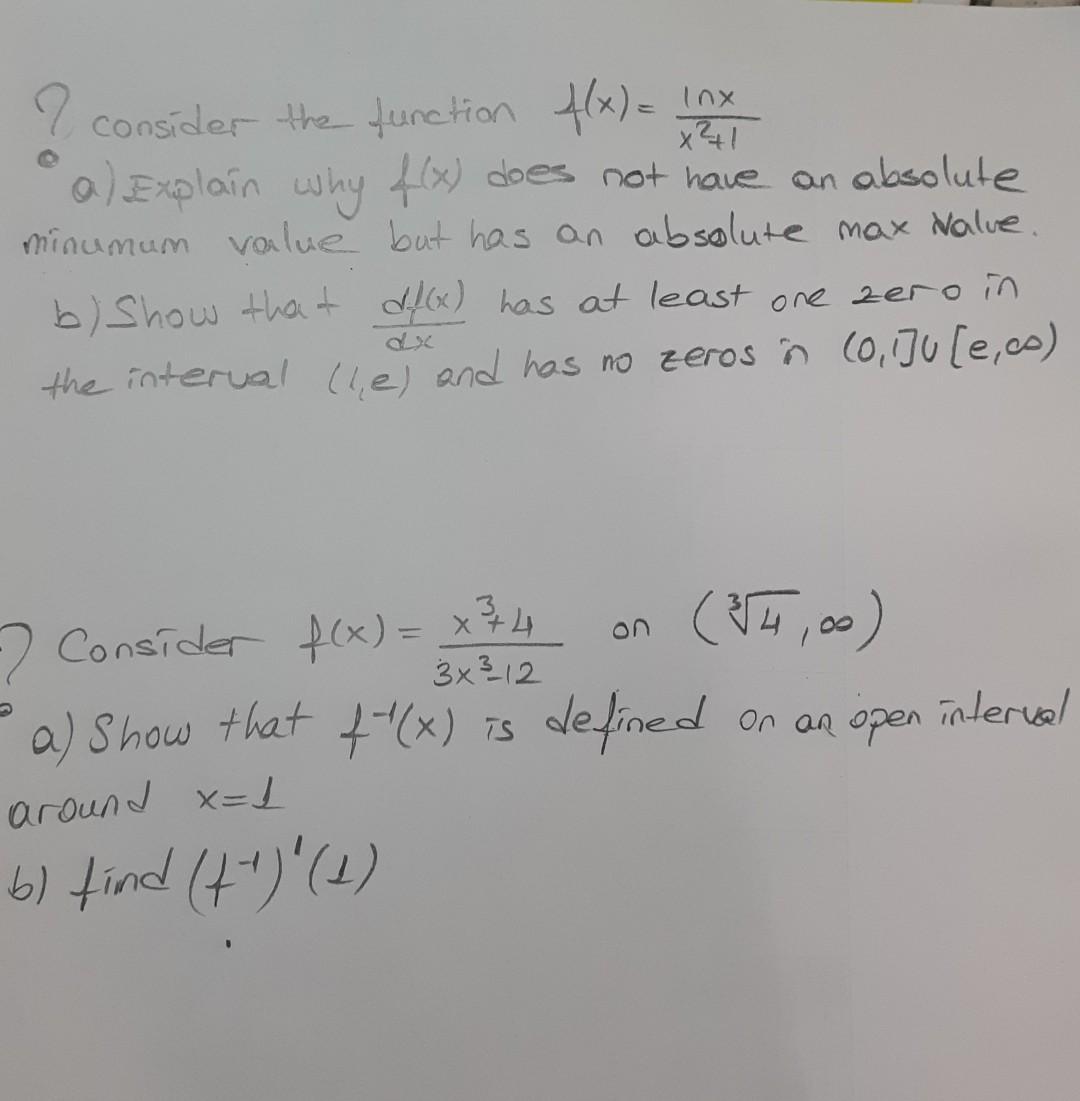 ? consider the function f(x) = lnx / x²+1
a) Explain why f(x) does not have an absolute
minumum value but has an absolute max Value.
b) Show that df(x)/dx has at least one zero in
the interval (1,e) and has no zeros in (0,1]∪[e,∞)
? Consider f(x) = x³+4 / 3x³-12 on (∛4,∞)
a) Show that f⁻¹(x) is defined on an open interval
around x=1
b) find (f⁻¹)'(1)